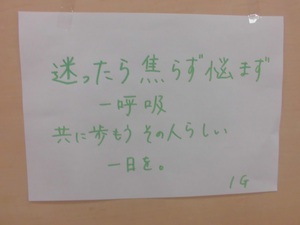 迷ったら焦らず悩まず
一呼吸
共に歩もう その人らしい
一日を。
1G